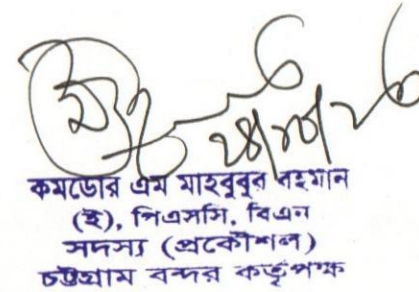 কমডোর এম মাহবুবুর রহমান
(ই), পিএসসি, বিএন
সদস্য (প্রকৌশল)
চট্টগ্রাম বন্দর কর্তৃপক্ষ